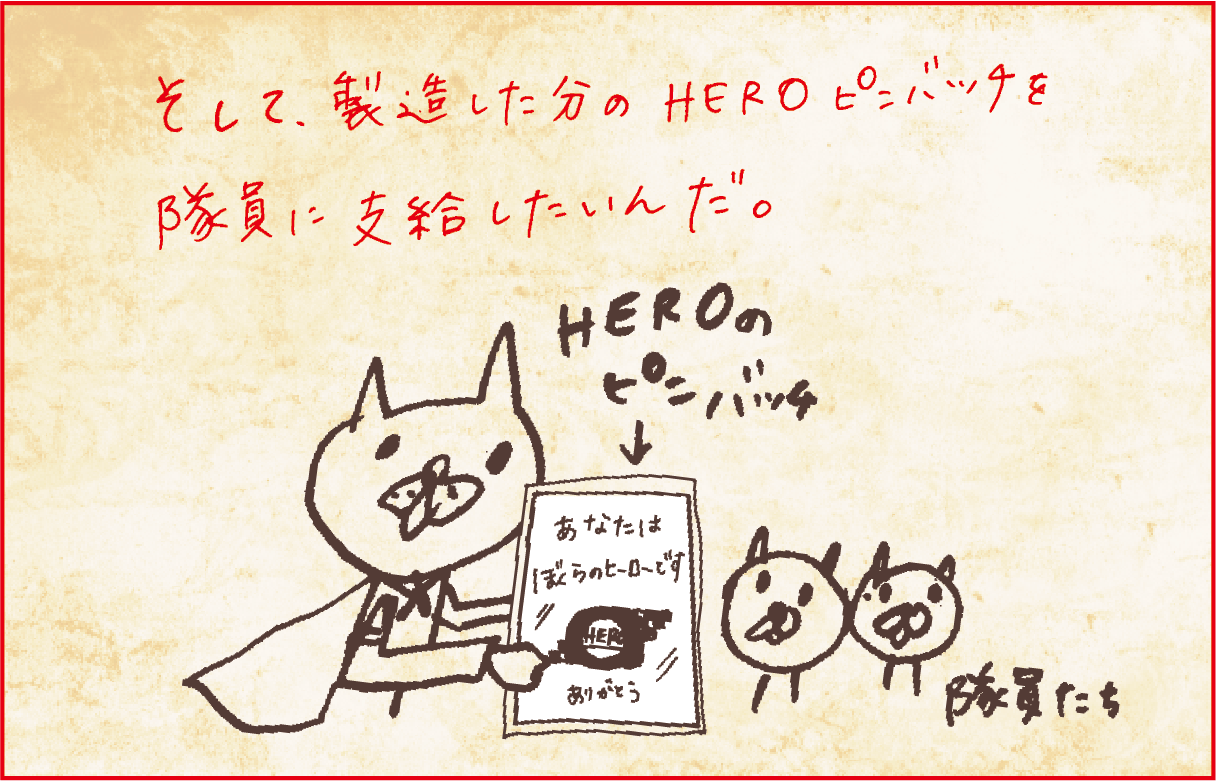 そして、製造した分のHEROピンバッチを
隊員に支給したいんだ。
HEROの
ピンバッチ
↓
あなたは
ぼくらのヒーローです
HERO
ありがとう
隊員たち